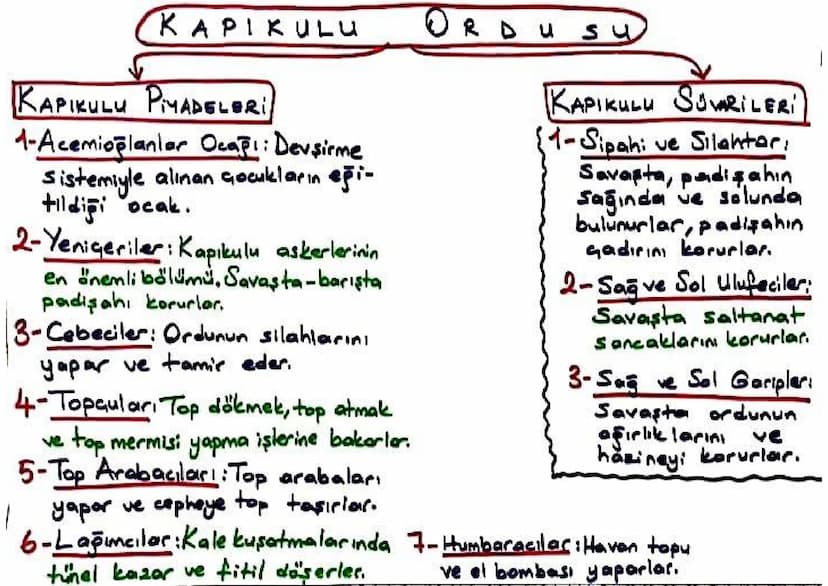 KAPIKULU ORDUSU
KAPIKULU PİYADELERİ
1-Acemioğlanlar Ocağı: Devşirme
sistemiyle alınan çocukların eği-
tildiği ocak.
2-Yeniçeriler: Kapıkulu askerlerinin
en önemli bölümü. Savaşta-barışta
padişahı korurlar.
3-Cebeciler: Ordunun silahlarını
yapar ve tamir eder.
4-Topçular: Top dökmek, top atmak
ve top mermisi yapma işlerine bakarlar.
5-Top Arabacıları: Top arabaları
yapar ve cepheye top taşırlar.
6-Lağımcılar: Kale kuşatmalarında
tünel kazar ve fitil döşerler.
7-Humbaracılar: Havan topu
ve el bombası yaparlar.
KAPIKULU SÜVARİLERİ
1-Sipahi ve Silahtar:
Savaşta, padişahın
sağında ve solunda
bulunurlar, padişahın
çadırını korurlar.
2-Sağ ve Sol Ulufeciler:
Savaşta saltanat
sancaklarını korurlar.
3-Sağ ve Sol Garipler:
Savaşta ordunun
ağırlıklarını ve
hazineyi korurlar.